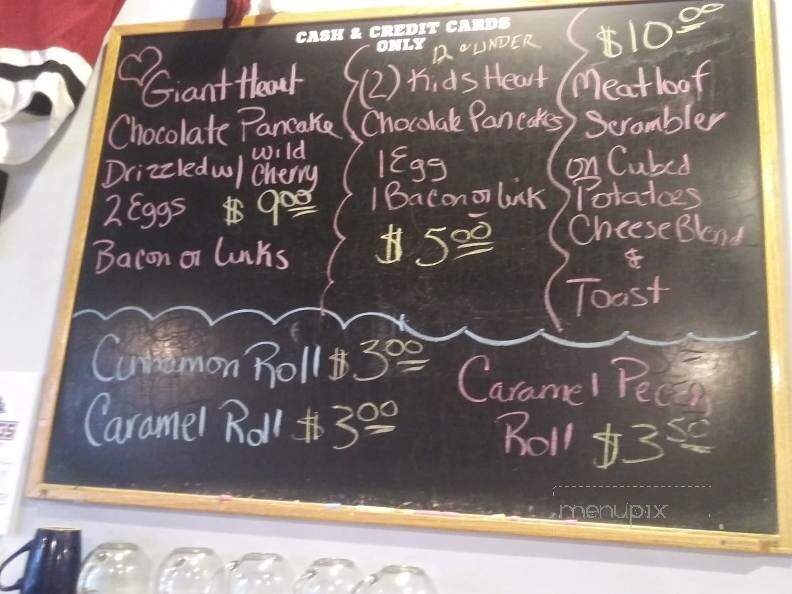 CASH & CREDIT CARDS
ONLY
Giant Heart
Chocolate Pancake
Drizzled w/ wild Cherry
2 Eggs $9.00
Bacon or Links
12 & UNDER
(2) Kids Heart
Chocolate Pancakes
1 Egg
1 Bacon or link
$5.00
$10.00
Meatloaf
Scrambler
on Cubed
Potatoes
Cheese Blend
&
Toast
Cinnamon Roll $3.00
Caramel Roll $3.00
Caramel Pecan
Roll $3.50
menupix